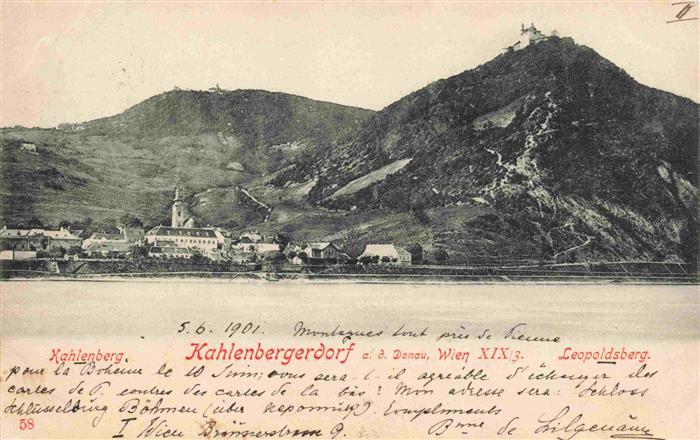 II
5.6.1901. Montagnes tout près de Vienne
Kahlenberg. Kahlenbergerdorf a. d. Donau, Wien XIX/3. Leopoldsberg.
pour la Bohême le 10 Juin; vous sera-t-il agréable d'échanger des
cartes de contres des cartes de la bas? Mon adresse sera: Schloss
Schlüsselburg Böhmen (über Nepomuk). Compliments
58 I Wien 9. Bnne de